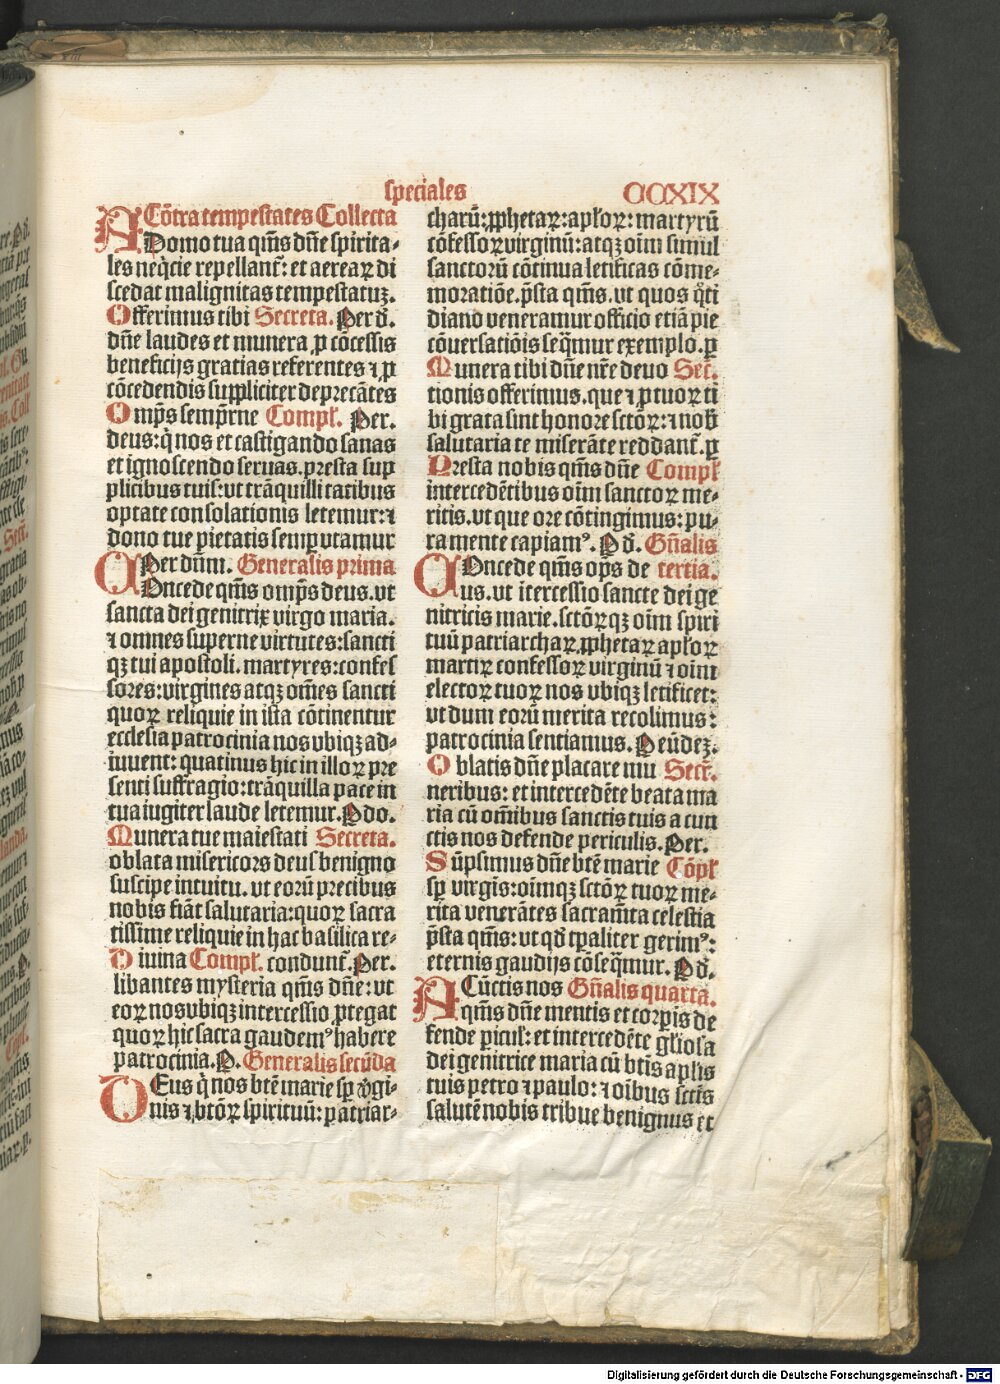 speciales CCXIX
Cōtra tempestates Collecta
A Domo tua qm̄s dn̄e spirita⸗
les neq̄cie repellant᷑: et aereaꝝ di
scedat malignitas tempestatuꝫ.
Offerimus tibi Secreta. Per d̄.
dn̄e laudes et munera ꝓ cōcessis
beneficijs gratias referentes ⁊ ꝓ
cōcedendis suppliciter deprecātes
Omp̄s semp̄rne Compl̄. Per.
deus: q̄ nos et castigando sanas
et ignoscendo seruas. presta sup
plicibus tuis: vt trāquillitatibus
optate consolationis letemur: ⁊
dono tue pietatis semꝑ vtamur
Per dn̄m. Generalis prima
COncede qm̄s omp̄s deus. vt
sancta dei genitrix virgo maria.
⁊ omnes superne virtutes: sancti
qꝫ tui apostoli. martyres: confes
sores: virgines atqꝫ om̄es sancti
quoꝝ reliquie in ista cōtinentur
ecclesia patrocinia nos vbiqꝫ ad⸗
iuuent: quatinus hic in illoꝝ pre
senti suffragio: trāquilla pace in
tua iugiter laude letemur. P do.
Munera tue maiestati Secreta.
oblata misericors deus benigno
suscipe intuitu. vt eorū precibus
nobis fiāt salutaria: quoꝝ sacra
tissime reliquie in hac basilica re⸗
Diuina Compl̄. condunt᷑. Per.
libantes mysteria qm̄s dn̄e: vt
eoꝝ nos vbiqꝫ intercessio ꝓtegat
quoꝝ hic sacra gaudemꝰ habere
patrocinia. P. Generalis secūda
DEus q̄ nos btē marie sꝑ v̓gi⸗
nis ⁊ btōꝝ spirituū: patriar⸗
charū: ꝓphetaꝝ: apl̄oꝝ: martyrū
cōfessoꝝ virginū: atqꝫ oīm simul
sanctorū cōtinua letificas cōme⸗
moratiōe. p̄sta qm̄s. vt quos q̊ti
diano veneramur officio etiā pie
cōuersatiōis seq̄mur exemplo. ꝑ
Munera tibi dn̄e nr̄e deuo Sec̄.
tionis offerimus. que ⁊ ꝓ tuoꝝ ti
bi grata sint honore sctōꝝ: ⁊ nob̄
salutaria te miserāte reddant᷑. ꝑ
Presta nobis qm̄s dn̄e Compl̄
intercedētibus oīm sanctoꝝ me⸗
ritis. vt que ore cōtingimus: pu⸗
ra mente capiamꝰ. P d̄. Gn̄alis
COncede qm̄s op̄s de tertia.
us. vt ītercessio sancte dei ge
nitricis marie. sctōꝝqꝫ oīm spiri
tuū patriarchaꝝ ꝓphetaꝝ apl̄oꝝ
martiꝝ confessoꝝ virginū ⁊ oīm
electoꝝ tuoꝝ nos vbiqꝫ letificet:
vt dum eorū merita recolimus:
patrocinia sentiamus. Per eūdeꝫ.
Oblatis dn̄e placare mu Secr̄.
neribus: et intercedēte beata ma
ria cū om̄ibus sanctis tuis a cun
ctis nos defende periculis. Per.
Sūpsimus dn̄e btē marie Cōpl̄
sꝑ virgīs: oīmqꝫ sctōꝝ tuoꝝ me⸗
rita venerātes sacram̄ta celestia
p̄sta qm̄s: vt qd̄ tꝑaliter gerimꝰ:
eternis gaudijs cōseq̄mur. P d̄.
A Cūctis nos Gn̄alis quarta.
qm̄s dn̄e mentis et corꝑis de
fende picul̄: et intercedēte gl̄iosa
dei genitrice maria cū btīs apl̄is
tuis petro ⁊ paulo: ⁊ oībus sctīs
salutē nobis tribue benignus et
Digitalisierung gefördert durch die Deutsche Forschungsgemeinschaft - DFG